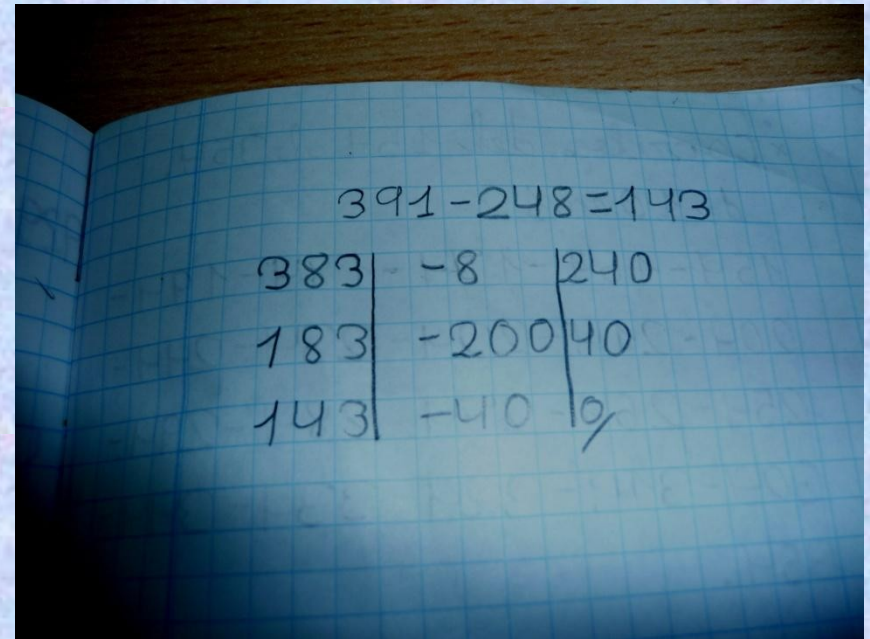 391-248=143
383| -8 |240
183| -200|40
143| -40 |0/